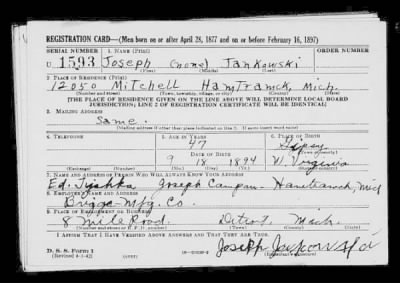 REGISTRATION CARD—(Men born on or after April 28, 1877 and on or before February 16, 1897)
SERIAL NUMBER 1. NAME (Print)
U 1593 Joseph (none) Jankowski
(First) (Middle) (Last)
2. PLACE OF RESIDENCE (Print)
12050 Mitchell Hamtramck, Mich.
(Number and street) (Town, township, village, or city) (County) (State)
[THE PLACE OF RESIDENCE GIVEN ON THE LINE ABOVE WILL DETERMINE LOCAL BOARD
JURISDICTION; LINE 2 OF REGISTRATION CERTIFICATE WILL BE IDENTICAL]
3. MAILING ADDRESS
Same.
[Mailing address if other than place indicated on line 2. If same insert word same]
4. TELEPHONE 5. AGE IN YEARS 6. PLACE OF BIRTH
47
DATE OF BIRTH
9 18 1894 W. Virginia
(Exchange) (Number) (Mo.) (Day) (Yr.) (State or country)
7. NAME AND ADDRESS OF PERSON WHO WILL ALWAYS KNOW YOUR ADDRESS
Ed. Joseph Campau- Hamtramck, Mich
8. EMPLOYER'S NAME AND ADDRESS
Briggs Mfg. Co.
9. PLACE OF EMPLOYMENT OR BUSINESS
8 Mile Road. Detroit Mich.
(Number and street or R. F. D. number) (Town) (County) (State)
I AFFIRM THAT I HAVE VERIFIED ABOVE ANSWERS AND THAT THEY ARE TRUE.
D. S. S. Form 1
(Revised 4-1-42) (over)
Joseph Jankowski